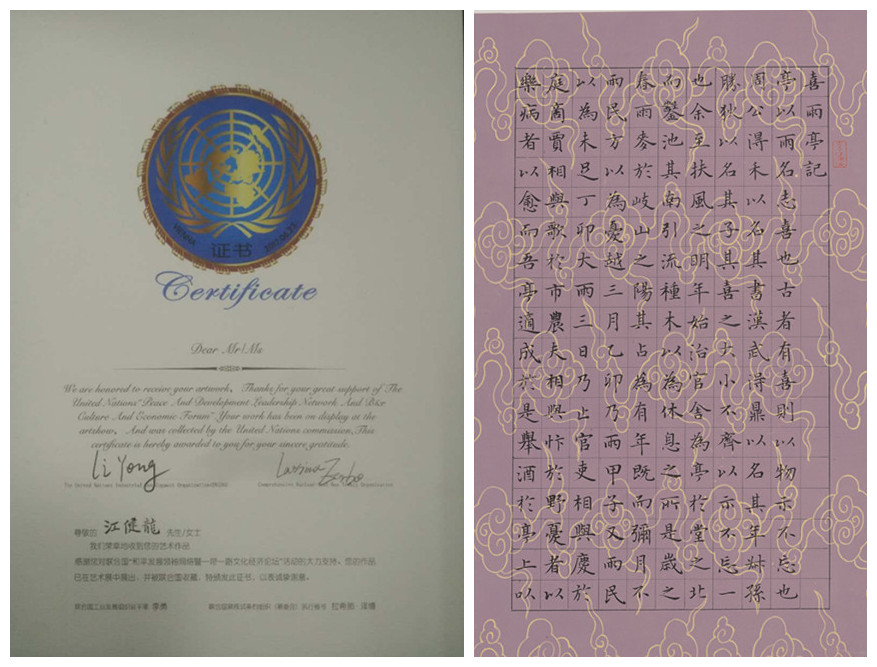 VIENNA
证书
Certificate
Dear Mr/Ms
We are honored to receive your artwork, Thanks for your great support of The
United Nations "Peace And Development Leadership Network And B&r
Culture And Economic Forum" Your work has been on display at the
artshow, And was collected by the United Nations commission.This
certificate is hereby awarded to you for your sincere gratitude.
Li Yong
尊敬的 江健龍 先生/女士
我们荣幸地收到您的艺术作品
感谢您对联合国"和平发展领袖网络暨一带一路文化经济论坛"活动的大力支持,您的作品
已在艺术展中展出,并被联合国收藏,特颁发此证书,以表诚挚谢意。
喜雨亭記
亭以雨名志喜也古者有喜則以物示不忘也
周公得禾以名其書漢武得鼎以名其年叔孫
勝狄以名其子其喜之大小不齊以示不忘一
也余至扶風之明年始治官舍為亭於堂之北
而鑿池其南引流種木以為休息之所是歲之
春雨麥於岐山之陽其占為有年既而彌月不
雨民方以為憂越三月乙卯乃雨甲子又雨民
以為未足丁卯大雨三日乃止官吏相與慶於
庭商賈相與歌於市農夫相與忭於野憂者以
樂病者以愈而吾亭適成於是舉酒於亭上以